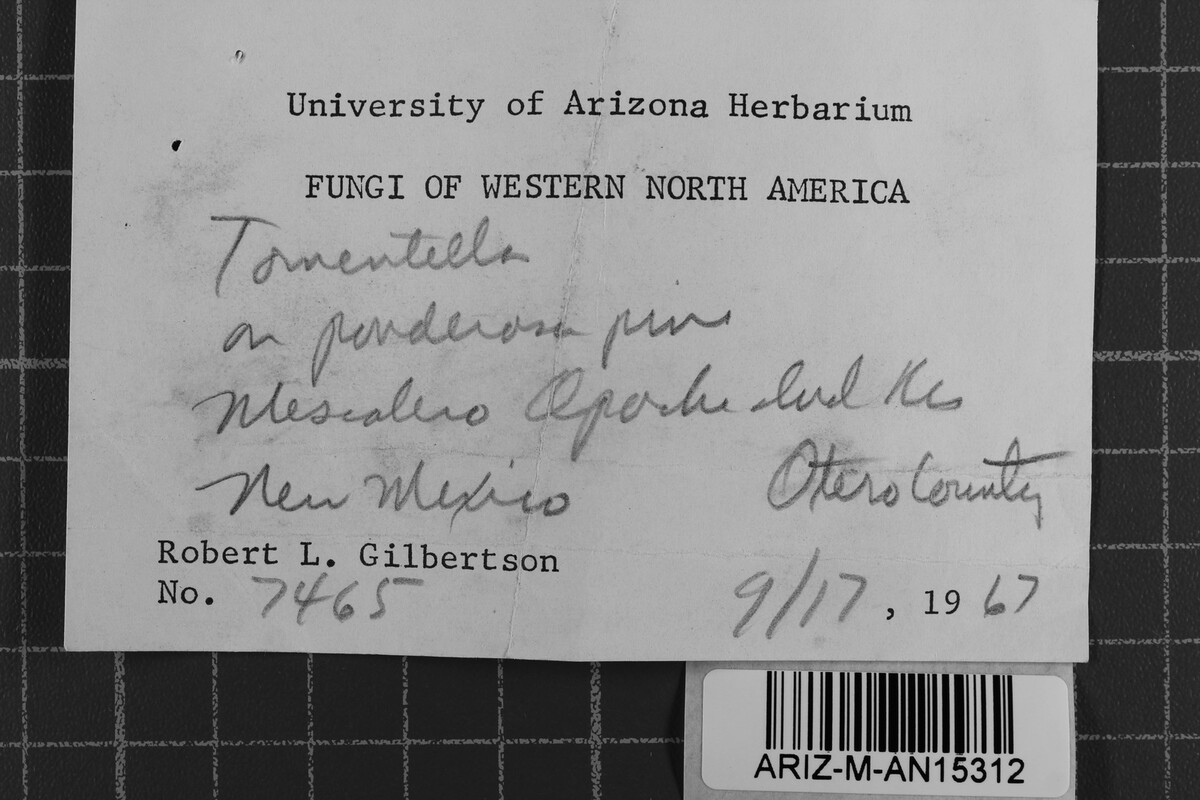 University of Arizona Herbarium
FUNGI OF WESTERN NORTH AMERICA
Tomentella
on ponderosa pine
Mescalero Apache Ind Res
New Mexico Otero County
Robert L. Gilbertson
No. 7465 9/17, 1967
ARIZ-M-AN15312